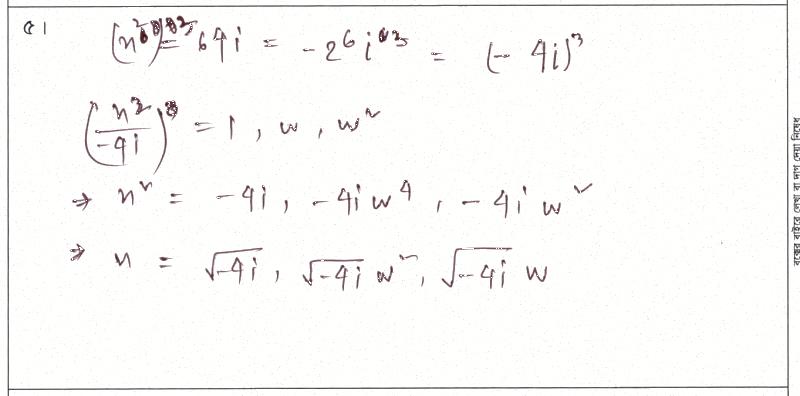 ৫।
(x²)³ = 64i = -2⁶i³ = (-4i)³
(x²/-4i)³ = 1, w, w²
⇒ x² = -4i, -4i w⁴, -4i w²
⇒ x = √-4i, √-4i w², √-4i w
বক্সের বাইরে লেখা বা দাগ দেয়া নিষেধ